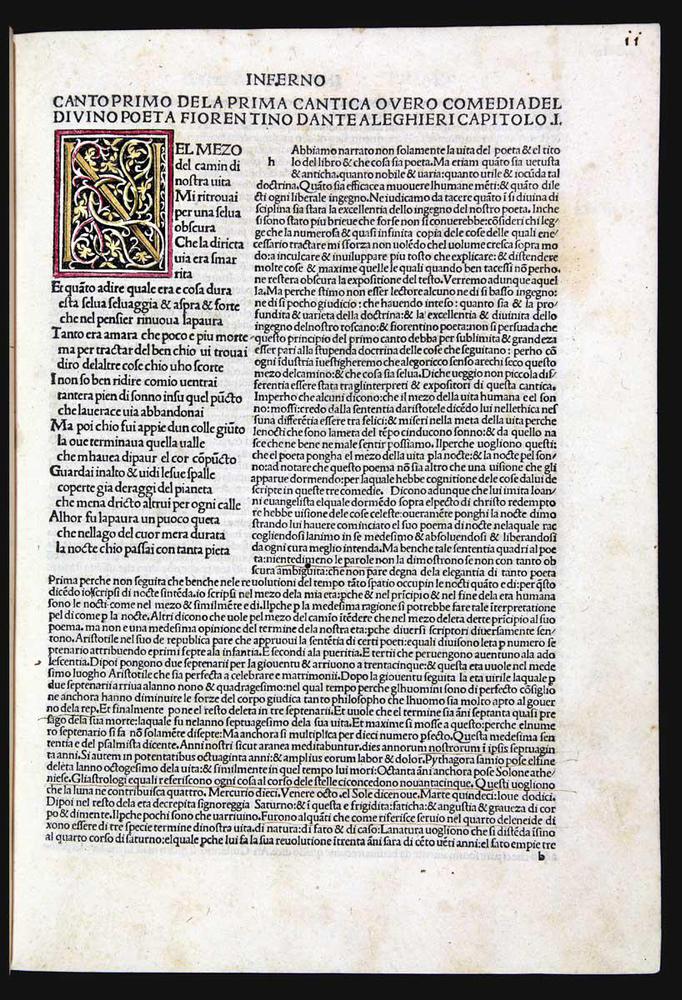 ii
INFERNO
CANTO PRIMO DE LA PRIMA CANTICA OVERO COMEDIA DEL
DIVINO POETA FIORENTINO DANTE ALEGHIERI CAPITOLO .I.
NEL MEZO
del camin di
nostra uita
Mi ritrouai
per una selua
obscura
Che la diricta
uia era smar
rita
Et quãto adire quale era e cosa dura
esta selua seluaggia & aspra & forte
che nel pensier rinuoua la paura
Tanto era amara che poco e piu morte
ma per tractar del ben chio ui trouai
diro delaltre cose chio uho scorte
I non so ben ridire comio uentrai
tantera pien di sonno insu quel pũcto
che la uerace uia abbandonai
Ma poi chio fui appie dun colle giũto
la oue terminaua quella ualle
che mhauea dipaur el cor cõpũcto
Guardai inalto & uidi lesue spalle
coperte gia deraggi del pianeta
che mena dricto altrui per ogni calle
Alhor fu la paura un puoco queta
che nellago del cuor mera durata
la nocte chio passai con tanta pieta
Abbiamo narrato non solamente la uita del poeta & el tito
h lo del libro & che cosa sia poeta. Ma etiam quãto sia uetusta
& anticha. quanto nobile & uaria: quanto utile & iocũda tal
doctrina. Quãto sia efficace a muouere lhumane mẽti: & quãto dile
cti ogni liberale ingegno. Ne iudicamo da tacere quãto i si diuina di
sciplina sia stata la excellentia dello ingegno del nostro poeta. Inche
si sono stato piu brieue che forse non si conuerebbe: cõsideri chi leg/
ge che la numerosa & quasi infinita copia dele cose delle quali e ne/
cessario tractare mi sforza non uolẽdo chel uolume cresca sopra mo
do: a inculcare & inuiluppare piu tosto che explicare: & distendere
molte cose & maxime quelle le quali quando ben tacessi nõ perho.
ne restera obscura la expositione del testo. Verremo adunque aquel
la. Ma perche stimo non esser lectore alcuno ne di si basso ingegno:
ne di si pocho giudicio: che hauendo inteso: quanto sia & la pro/
fundita & uarieta della doctrina: & la excellentia & diuinita dello
ingegno delnostro toscano: & fiorentino poeta: non si persuada che
questo principio del primo canto debba per sublimita & grandeza
esser pari alla stupenda doctrina delle cose che seguitano: perho cõ
ogni ĩdustria iuestigheremo che alegorico senso arechi seco questo
mezo delcamino: & che cosa sia selua. Di che ueggio non piccola dif/
ferentia essere stata tra glinterpreti & expositori di questa cantica.
Imperho che alcuni dicono: che il mezo della uita humana e el son
no: mossi: credo dalla sententia daristotele dicẽdo lui nellethica nes
suna differẽtia essere tra felici: & miseri nella meta della uita perche
lenocti che sono la meta del tẽpo cinducono sonno: & da quello na
sce che ne bene ne male sentir possiamo. Ilperche uogliono questi:
che el poeta pongha el mezo della uita pla nocte: & la nocte pel son/
no: ad notare che questo poema nõ sia altro che una uisione che gli
apparue dormendo: per laquale hebbe cognitione dele cose dalui de
scripte in queste tre comedie. Dicono adunque che lui imita Ioan/
ni euangelista elquale dormẽdo sopra elpecto di christo redempto
re hebbe uisione dele cose celeste: oueramẽte ponghi la nocte dimo
strando lui hauere cominciato el suo poema di nocte nelaquale rac
cogliendosi lanimo in se medesimo & absoluendosi & liberandosi
da ogni cura meglio intenda. Ma benche tale sententia quadri al poe
ta: nientedimeno le parole non la dimostrono se non con tanto ob
scura ambiguita: che non pare degna della elegantia di tanto poeta
Prima perche non seguita che benche nele reuolutioni del tempo tãto spatio occupin le nocti quãto e di: per q̃sto
dicẽdo io scripsi di nocte sintẽda. io scripsi nel mezo dela mia eta: pche & nel prĩcipio & nel fine dela eta humana
sono le nocti come nel mezo & similmẽte e di. Ilpche p la medesima ragione si potrebbe fare tale iterpretatione
pel di come p la nocte. Altri dicono che uole pel mezo del camio ĩtẽdere che nel mezo deleta dette prĩcipio al suo
poema. ma non e una medesima opinione del termine de la nostra eta: pche diuersi scriptori diuersamente sen/
tono. Aristotile nel suo de republica pare che appruoui la sentẽtia di certi poeti: equali diuisono leta p numero se
ptenario attribuendo eprimi septe ala infantia. E secondi ala pueritia. E tertii che peruengono auentuno ala ado
lescentia. Dipoi pongono due septenarii per la giouentu & arriuono a trentacinque: & questa eta uuole nel mede
simo luogho Aristotile che sia perfecta a celebrare e matrimonii. Dopo la giouentu seguita la eta uirile laquale p
due septenarii arriua alanno nono & quadragesimo: nel qual tempo perche glhuomini sono di perfecto cõsiglio
ne anchora hanno diminuite le forze del corpo giudica tanto philosopho che lhuomo sia molto apto al gouer
no dela rep. Et finalmente pone el resto deleta in tre septenarii. Et uuole che el termine sia ãni septanta quasi pre
sago dela sua morte: laquale fu nelanno septuagesimo dela sua uita. Et maxime si mosse a questo: perche elnume
ro septenario si fa nõ solamẽte disepte: Ma anchora si multiplica per dieci numero pfecto. Questa medesima sen
tentia e del psalmista dicente. Anni nostri sicut aranea meditabuntur. dies annorum nostrorum ĩ ipsis septuagin
ta anni. Si autem in potentatibus octuaginta anni: & amplius eorum labor & dolor. Pythagora samio pose elfine
deleta lanno octogesimo dela uita: & similmente in quel tempo lui mori: Octanta ãni anchora pose Solone athe/
niese. Gliastrologi equali referiscono ogni cosa al corso dele stelle ciconcedono nouantacinque. Questi uogliono
che la luna ne contribuisca quattro. Mercurio dieci. Venere octo. el Sole dicenoue. Marte quindeci: Ioue dodici.
Dipoi nel resto dela eta decrepita signoreggia Saturno: & ĩ questa e frigidita: faticha: & angustia & graueza di cor
po & dimente. Ilpche pochi sono che uarriuino. Furono alquãti che come riferisce seruio nel quarto deleneide di
xono essere di tre specie termine dinostra uita. di natura: di fato & di caso: La natura uogliono che si distẽda ĩsino
al quarto corso di saturno: elquale pche lui fa la sua reuolutione ĩtrenta ãni sara di cẽto uẽti anni: el fato empie tre
b